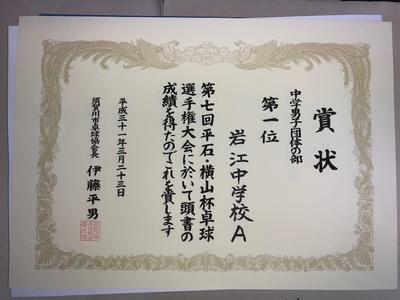 賞状
中学男子団体の部
第一位
岩江中学校A
第七回平石・横山杯卓球
選手権大会に於いて頭書の
成績を得たのでこれを賞します
平成三十一年三月二十三日
須賀川市卓球協会長 伊藤平男